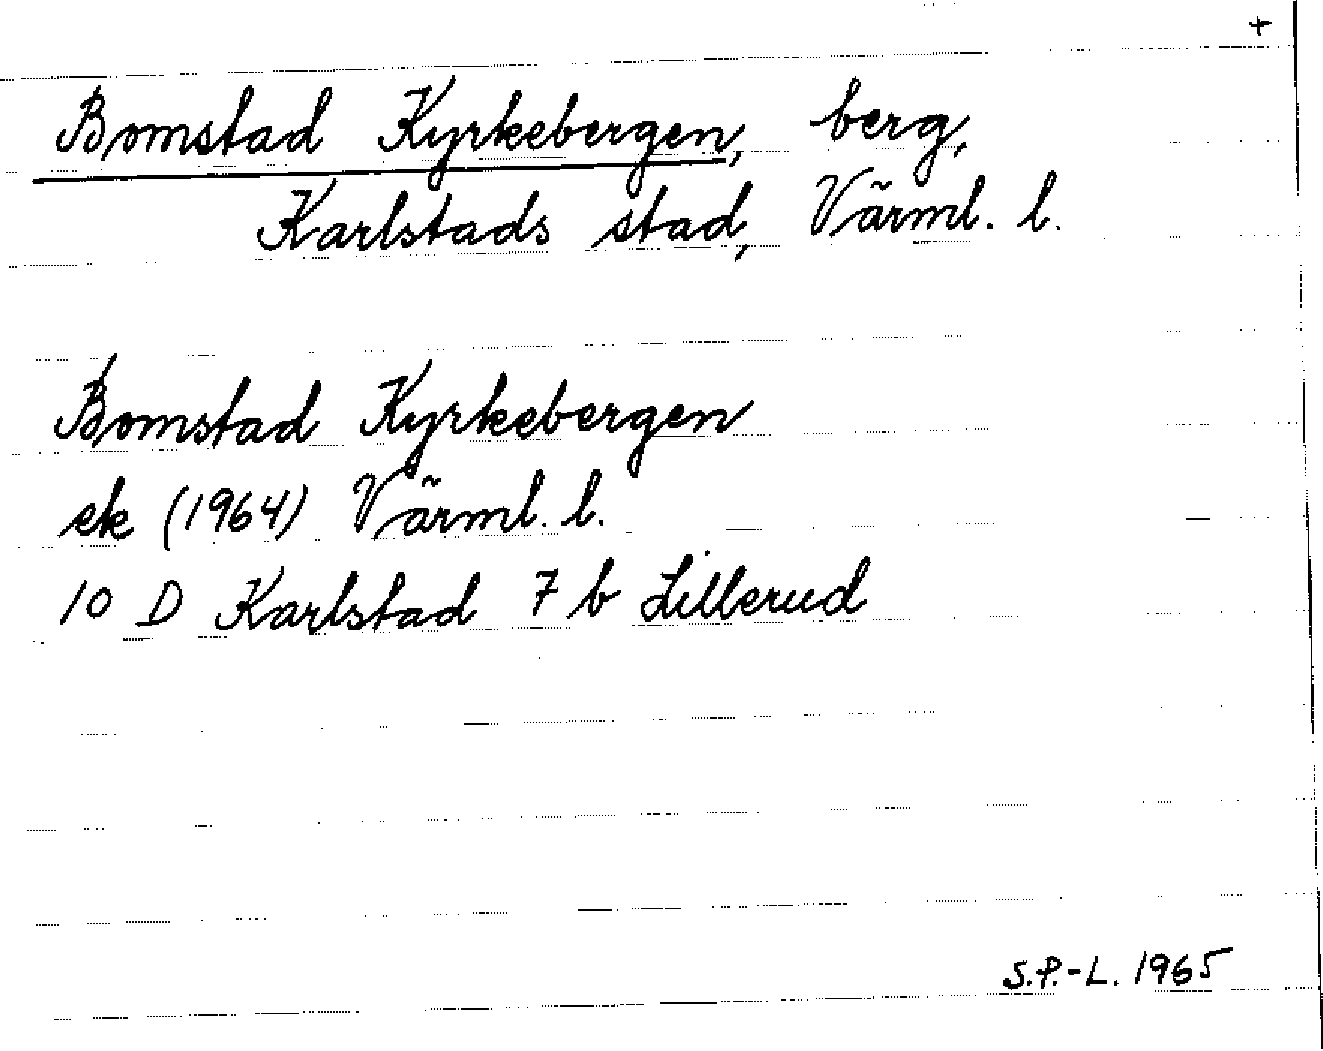 +
Bomstad Kyrkebergen, berg,
Karlstads stad, Värml. l.
Bomstad Kyrkebergen
ek (1964) Värml. l.
10 D Karlstad 7 b Lillerud
S.P.-L. 1965